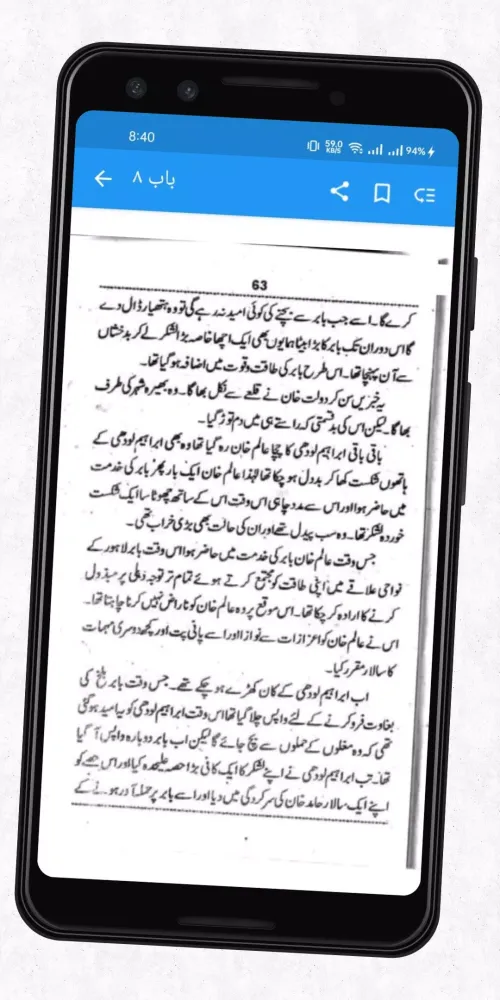 8:40
59.0
KB/S
94%
باب ۸
63
کرے گا۔ اسے جب بابر سے بچنے کی کوئی امید نہ رہے گی تو وہ ہتھیار ڈال دے
گا اس دوران تک بابر کا بڑا بیٹا ہمایوں بھی ایک اچھا خاصہ بڑا لشکر لے کر بدخشاں
سے آن پہنچا تھا۔ اس طرح بابر کی طاقت و قوت میں اضافہ ہو گیا تھا۔
یہ خبریں سن کر دولت خان نے قلعے سے نکل بھاگا۔ وہ بھیرہ شہر کی طرف
بھاگا۔ لیکن اس کی بد قسمتی کہ راستے ہی میں دم توڑ گیا۔
باقی باقی ابراہیم لودھی کا چچا عالم خان رہ گیا تھا وہ بھی ابراہیم لودھی کے
ہاتھوں شکست کھا کر بددل ہو چکا تھا لہٰذا عالم خان ایک بار پھر بابر کی خدمت
میں حاضر ہوا اور اس سے مدد چاہی اس وقت اس کے ساتھ چھوٹا سا ایک شکست
خوردہ لشکر تھا۔ وہ سب پیدل تھے اور ان کی حالت بھی بڑی خراب تھی۔
جس وقت عالم خان بابر کی خدمت میں حاضر ہوا اس وقت بابر لاہور کے
نواحی علاقے میں اپنی طاقت کو مجتمع کرتے ہوئے تمام تر توجہ دہلی پر مبذول
کرنے کا ارادہ کر چکا تھا۔ اس موقع پر وہ عالم خان کو ناراض نہیں کرنا چاہتا تھا۔
اس نے عالم خان کو اعزازات سے نوازا اور اسے پانی پت اور کچھ دوسری مہمات
کا سالار مقرر کیا۔
اب ابراہیم لودھی کے کان کھڑے ہو چکے تھے۔ جس وقت بابر بلخ کی
بغاوت فرو کرنے کے لئے واپس چلا گیا تھا اس وقت ابراہیم لودھی کو یہ امید ہو گئی
تھی کہ وہ مغلوں کے حملوں سے بچ جائے گا لیکن اب بابر دوبارہ واپس آ گیا
تھا۔ تب ابراہیم لودھی نے اپنے لشکر کا ایک کافی بڑا حصہ علیحدہ کیا اور اس حصے کو
اپنے ایک سالار حامد خان کی سرکردگی میں دیا اور اسے بابر پر حملہ آور ہونے کے